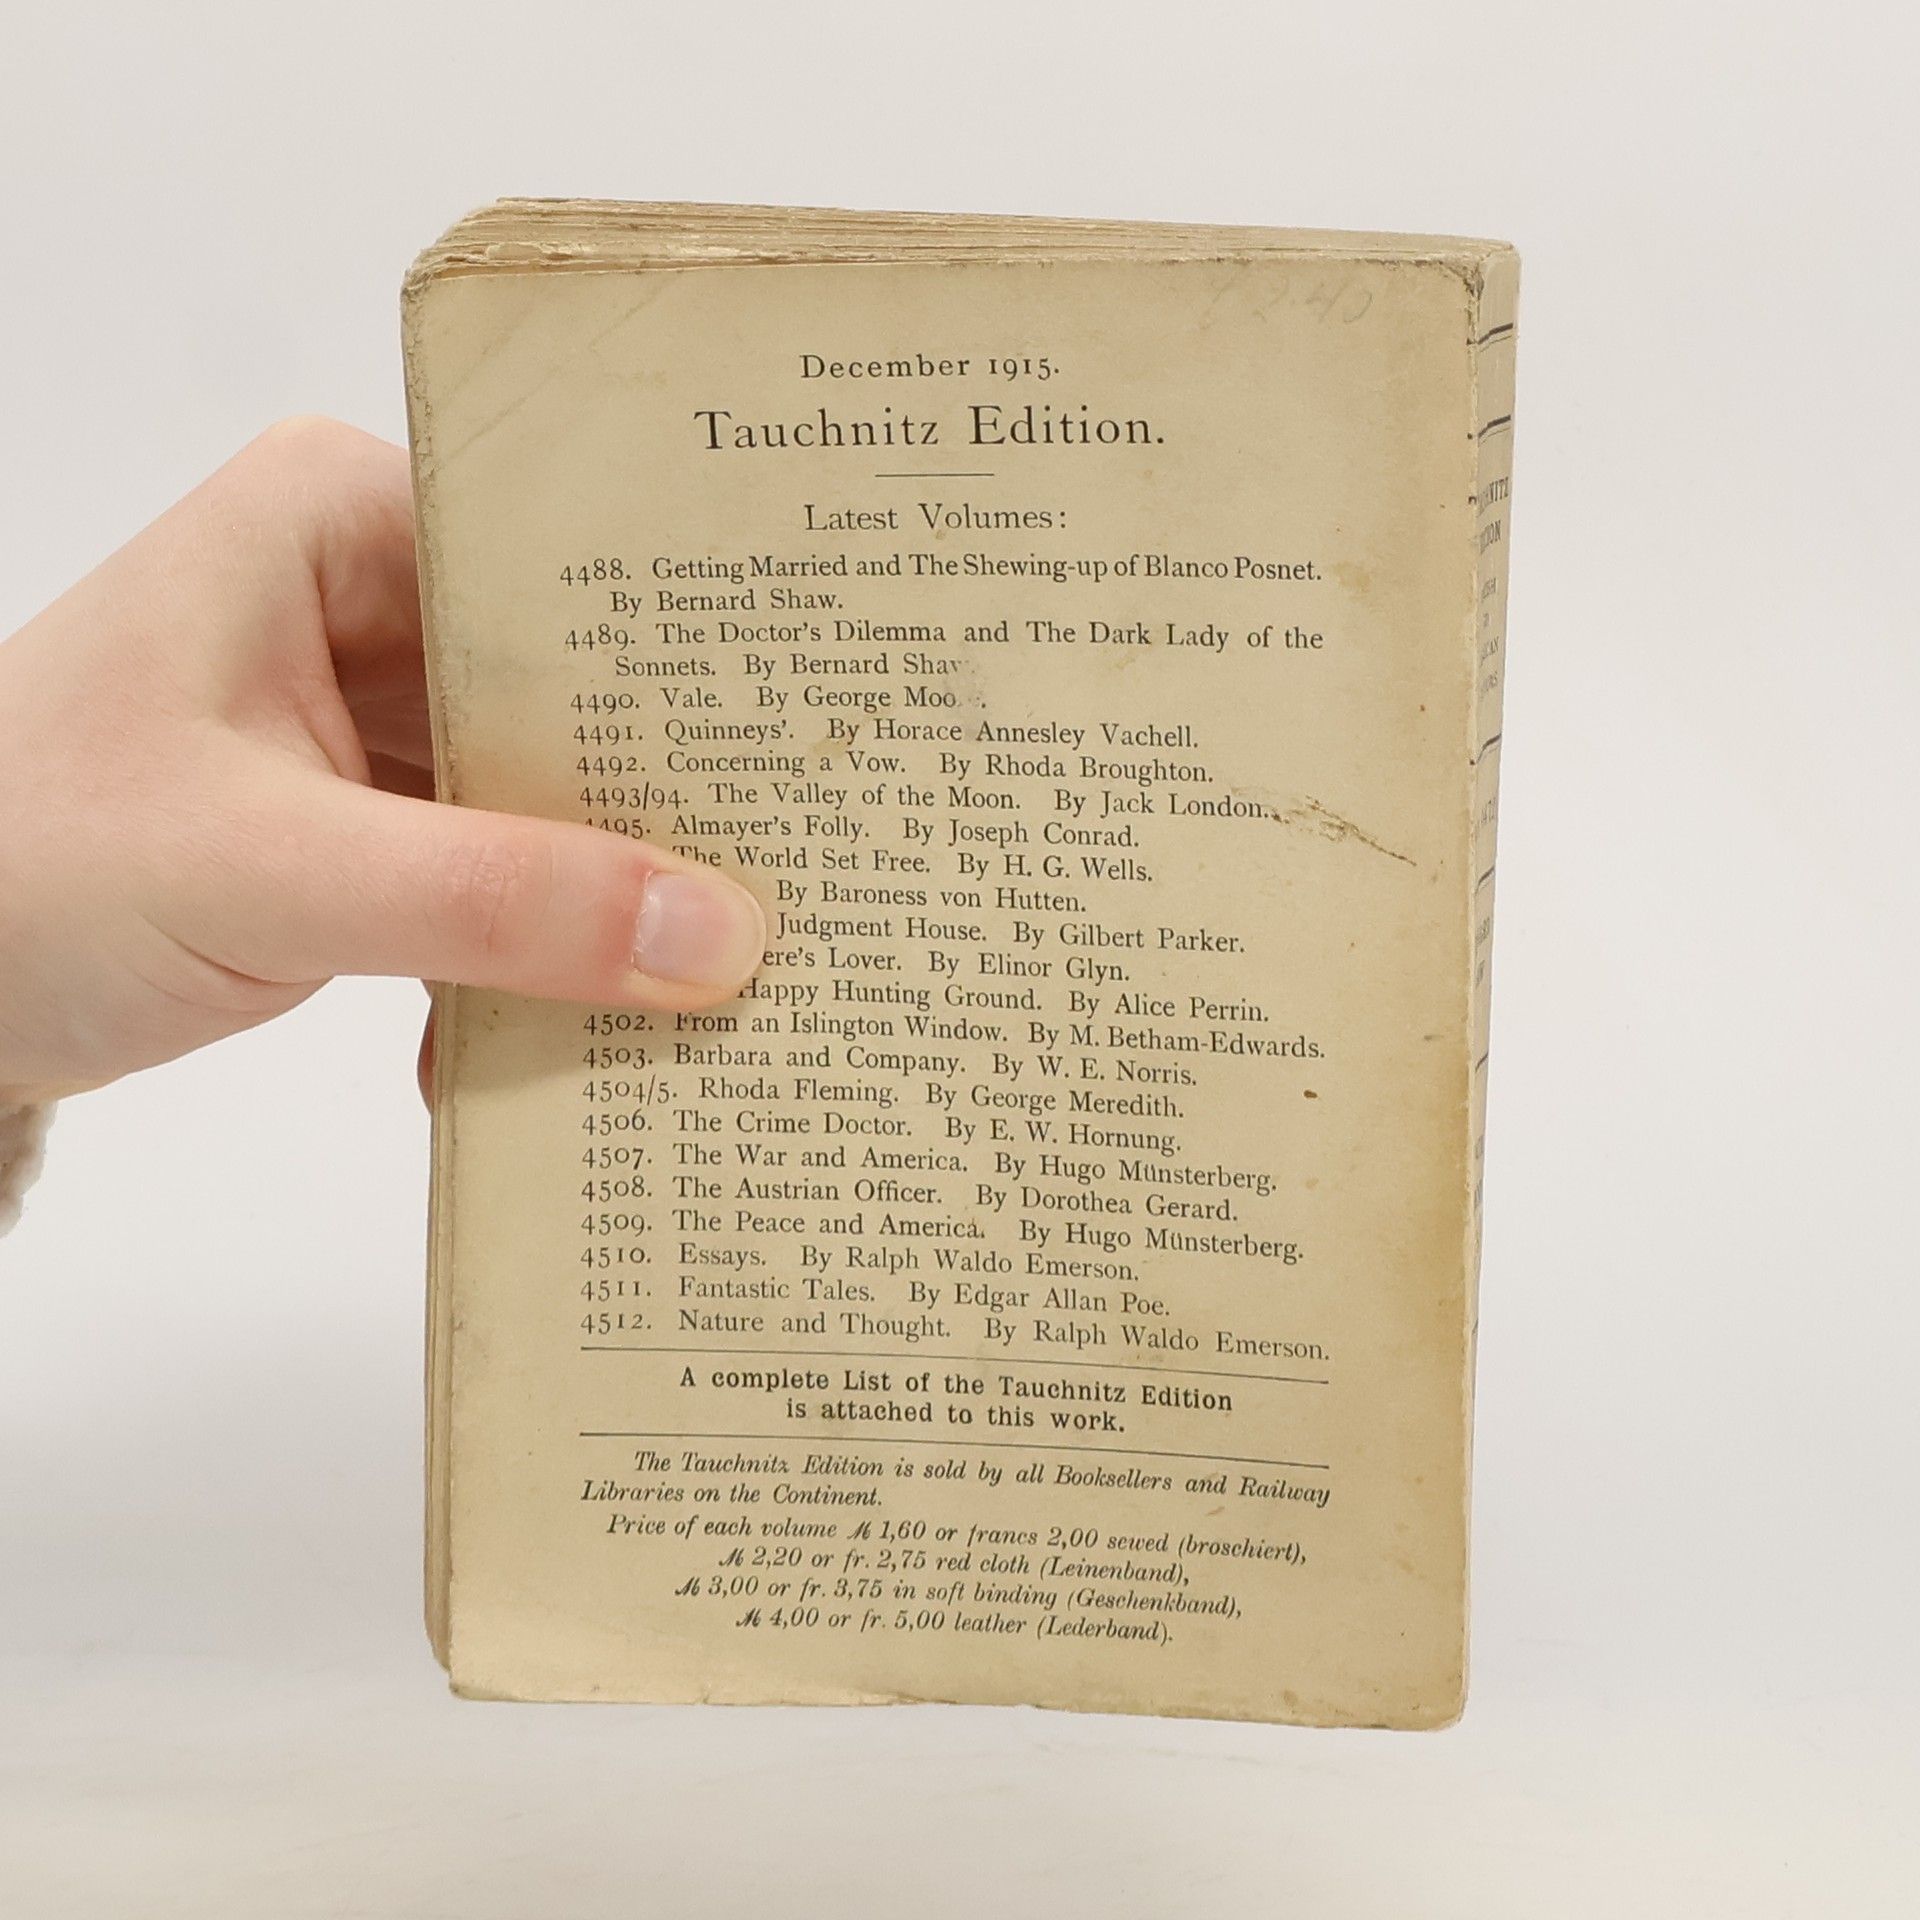 December 1915.
Tauchnitz Edition.
Latest Volumes:
4488. Getting Married and The Shewing-up of Blanco Posnet.
By Bernard Shaw.
4489. The Doctor's Dilemma and The Dark Lady of the
Sonnets. By Bernard Shaw
4490. Vale. By George Moo
4491. Quinneys'. By Horace Annesley Vachell.
4492. Concerning a Vow. By Rhoda Broughton.
4493/94. The Valley of the Moon. By Jack London.
4495. Almayer's Folly. By Joseph Conrad.
The World Set Free. By H. G. Wells.
By Baroness von Hutten.
Judgment House. By Gilbert Parker.
ere's Lover. By Elinor Glyn.
Happy Hunting Ground. By Alice Perrin.
4502. From an Islington Window. By M. Betham-Edwards.
4503. Barbara and Company. By W. E. Norris.
4504/5. Rhoda Fleming. By George Meredith.
4506. The Crime Doctor. By E. W. Hornung.
4507. The War and America. By Hugo Münsterberg.
4508. The Austrian Officer. By Dorothea Gerard.
4509. The Peace and America. By Hugo Münsterberg.
4510. Essays. By Ralph Waldo Emerson.
4511. Fantastic Tales. By Edgar Allan Poe.
4512. Nature and Thought. By Ralph Waldo Emerson.
A complete List of the Tauchnitz Edition
is attached to this work.
The Tauchnitz Edition is sold by all Booksellers and Railway
Libraries on the Continent.
Price of each volume ℳ 1,60 or francs 2,00 sewed (broschiert),
ℳ 2,20 or fr. 2,75 red cloth (Leinenband),
ℳ 3,00 or fr. 3,75 in soft binding (Geschenkband),
ℳ 4,00 or fr. 5,00 leather (Lederband).